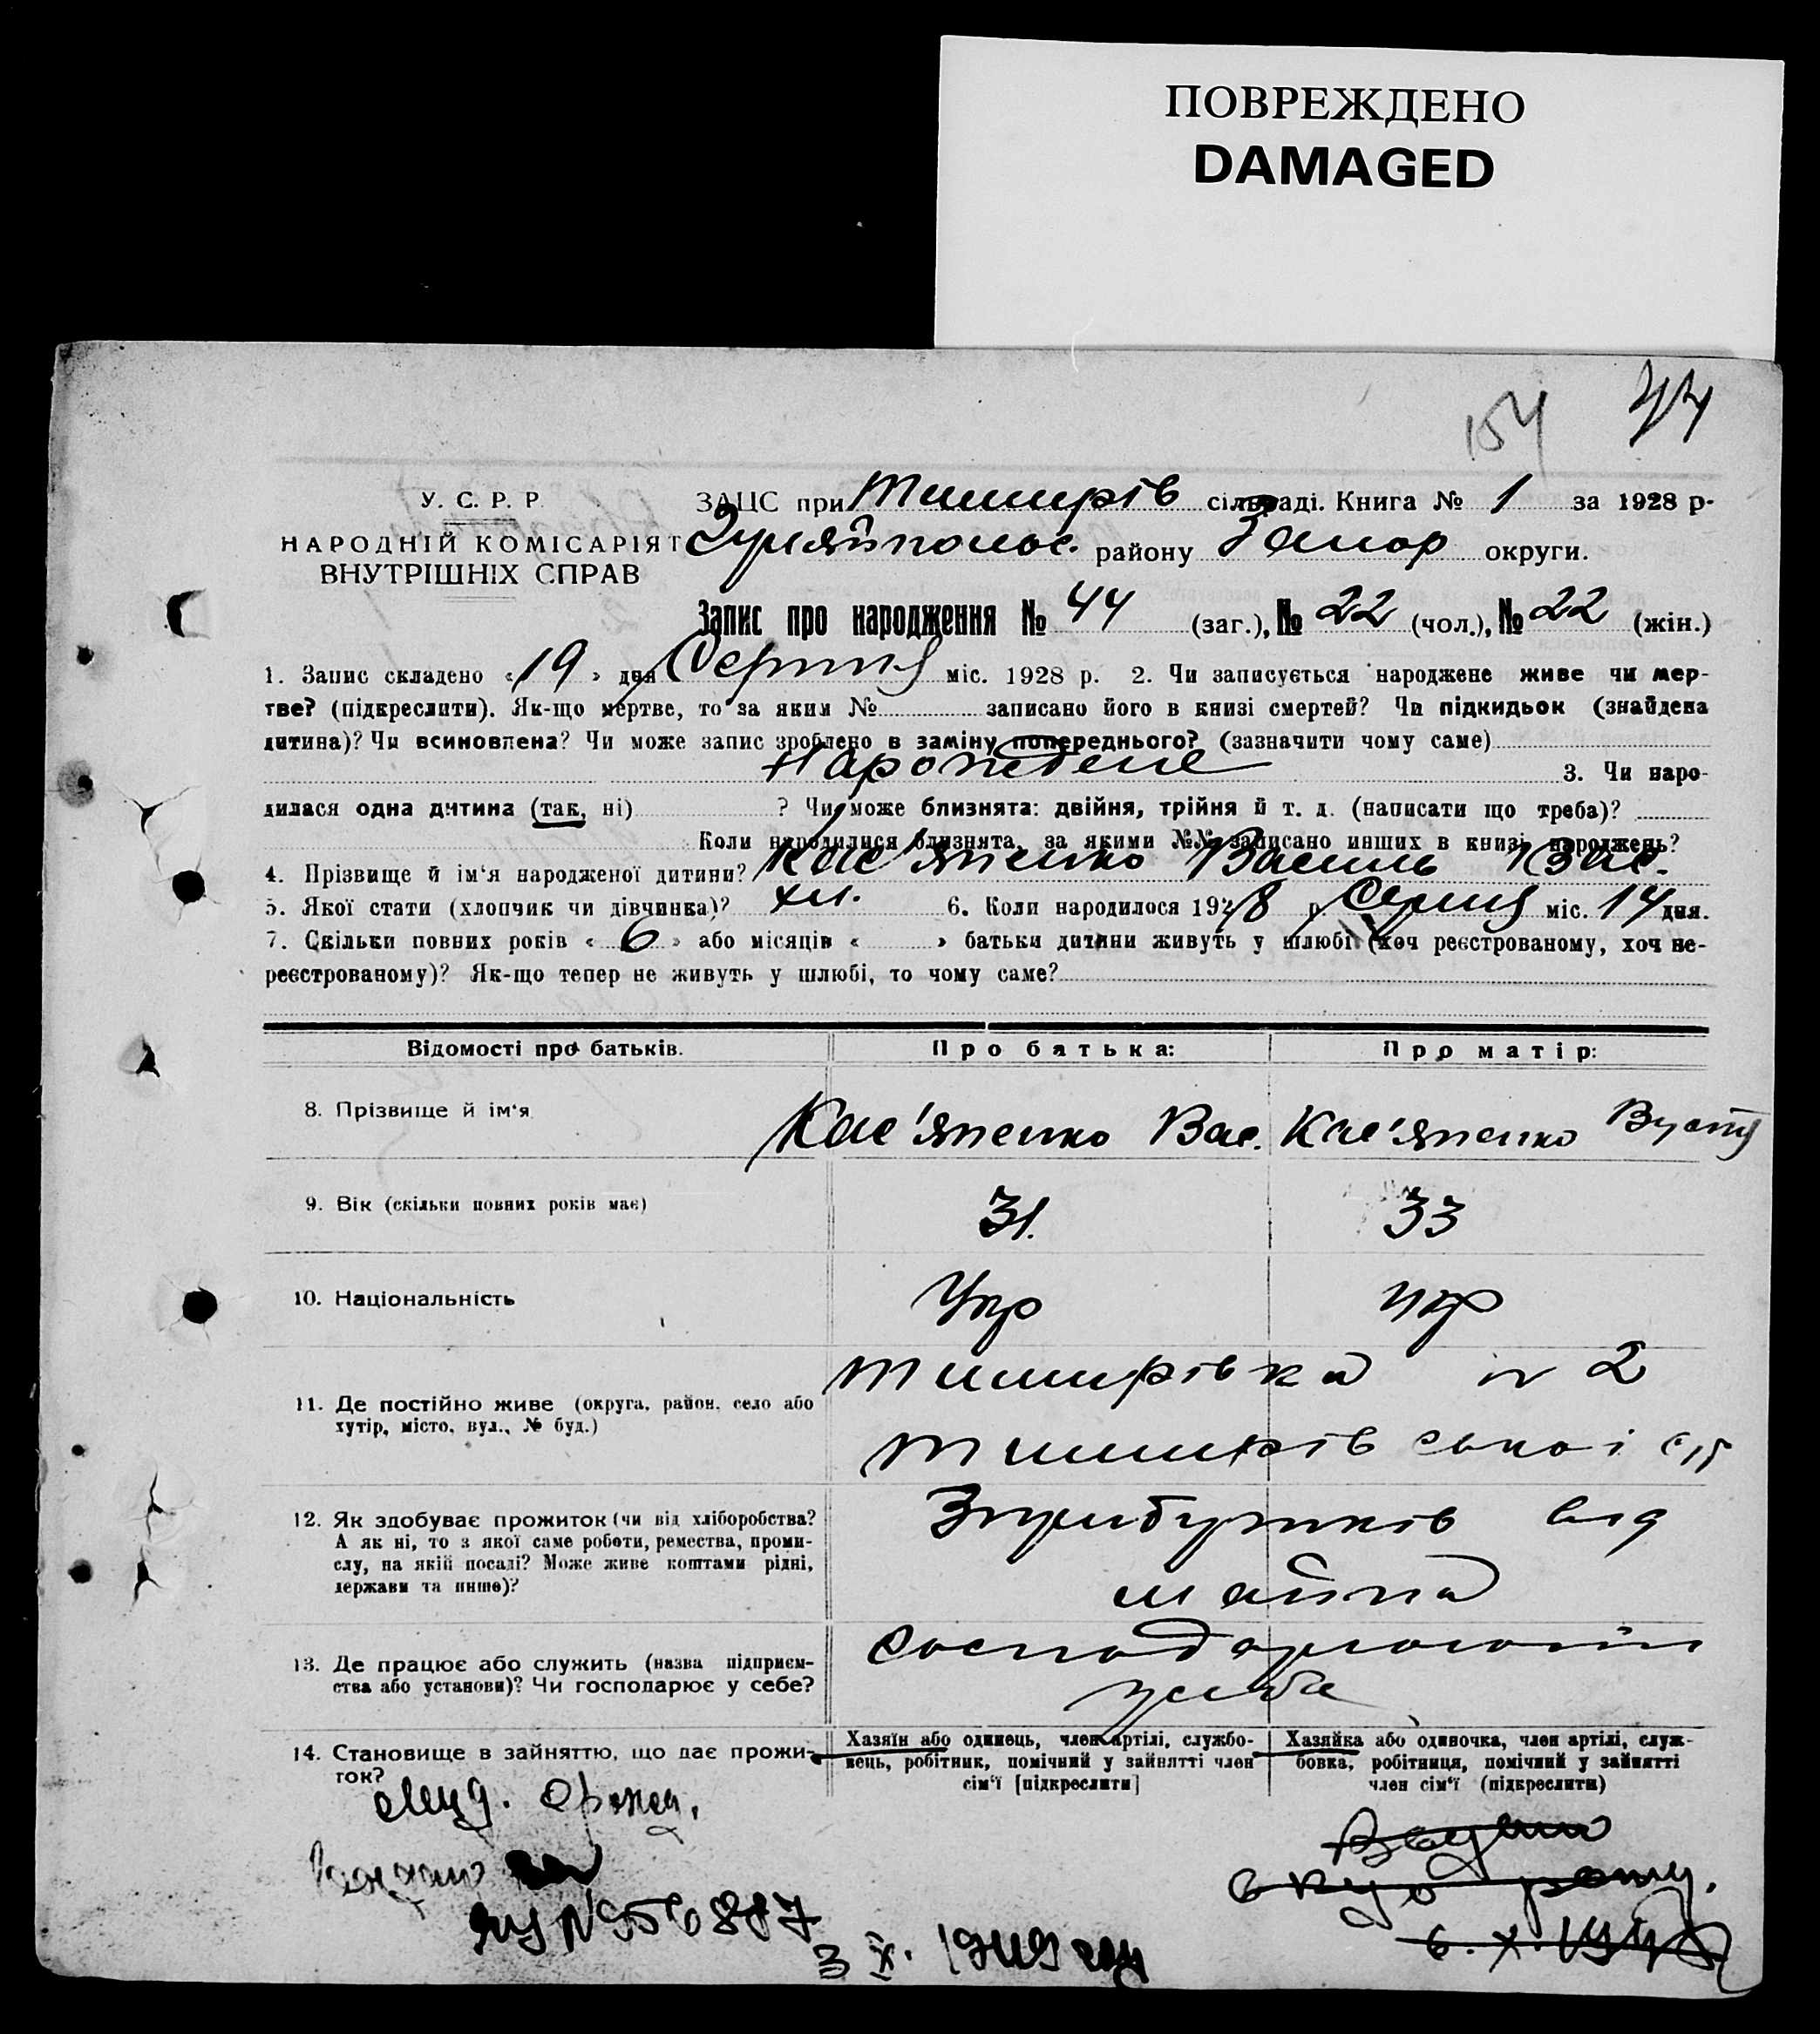 ПОВРЕЖДЕНО
DAMAGED
154 44
У. С. Р. Р.
НАРОДНІЙ КОМІСАРІЯТ
ВНУТРІШНІХ СПРАВ
ЗАЦС при сільраді. Книга № 1 за 1928 р.
Гуляйпольс. району Запор округи.
Запис про народження № 44 (заг.), № 22 (чол.), № 22 (жін.)
1. Запис складено «19» дня Серпня міс. 1928 р. 2. Чи записується народжене живе чи мер-
тве? (підкреслити). Як-що мертве, то за яким № записано його в книзі смертей? Чи підкидьок (знайдена
дитина)? Чи всиновлена? Чи може запис зроблено в заміну попереднього? (зазначити чому саме)
3. Чи наро-
дилася одна дитина (так, ні) ? Чи може близнята: двійня, трійня й т. д. (написати що треба)?
Коли народилися близнята, за якими №№ записано инших в книзі народжень?
4. Прізвище й ім'я народженої дитини? Кас'яненко Василь Вас.
5. Якої стати (хлопчик чи дівчинка)? хл. 6. Коли народилося 1928 р. Серпня міс. 14 дня.
7. Скільки повних років «6» або місяців « » батьки дитини живуть у шлюбі (хоч реєстрованому, хоч не-
реєстрованому)? Як-що тепер не живуть у шлюбі, то чому саме?
Відомості про батьків. Про батька: Про матір:
8. Прізвище й ім'я Кас'яненко Вас. Кас'яненко
9. Вік (скільки повних років має) 31. 33
10. Національність Укр укр
11. Де постійно живе (округа, район, село або
хутір, місто, вул., № буд.)
2
12. Як здобуває прожиток (чи від хліборобства?
А як ні, то з якої саме роботи, ремества, проми-
слу, на якій посаді? Може живе коштами рідні,
держави та инше)?
Зприбутків від
майна
13. Де працює або служить (назва підприєм-
ства або установи)? Чи господарює у себе?
усебе
14. Становище в зайняттю, що дає прожи-
ток?
Хазяїн або одинець, член артілі, службо-
вець, робітник, помічний у зайнятті член
сім'ї [підкреслити]
Хазяйка або одиночка, член артілі, служ-
бовка, робітниця, помічний у зайнятті
член сім'ї (підкреслити)